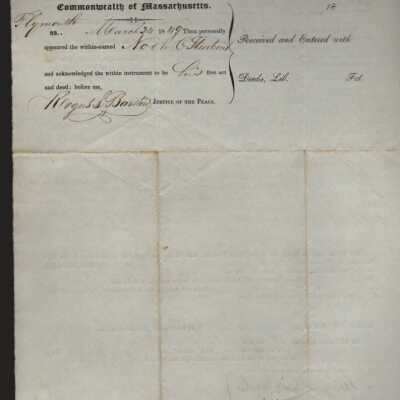 Commonwealth of Massachusetts.
Plymouth
ss. March 24 1849 Then personally
appeared the within-named Noah C
and acknowledged the within instrument to be his free act
and deed; before me,
Justice of the Peace.
18
Received and Entered with
Deeds, Lib. Fol.